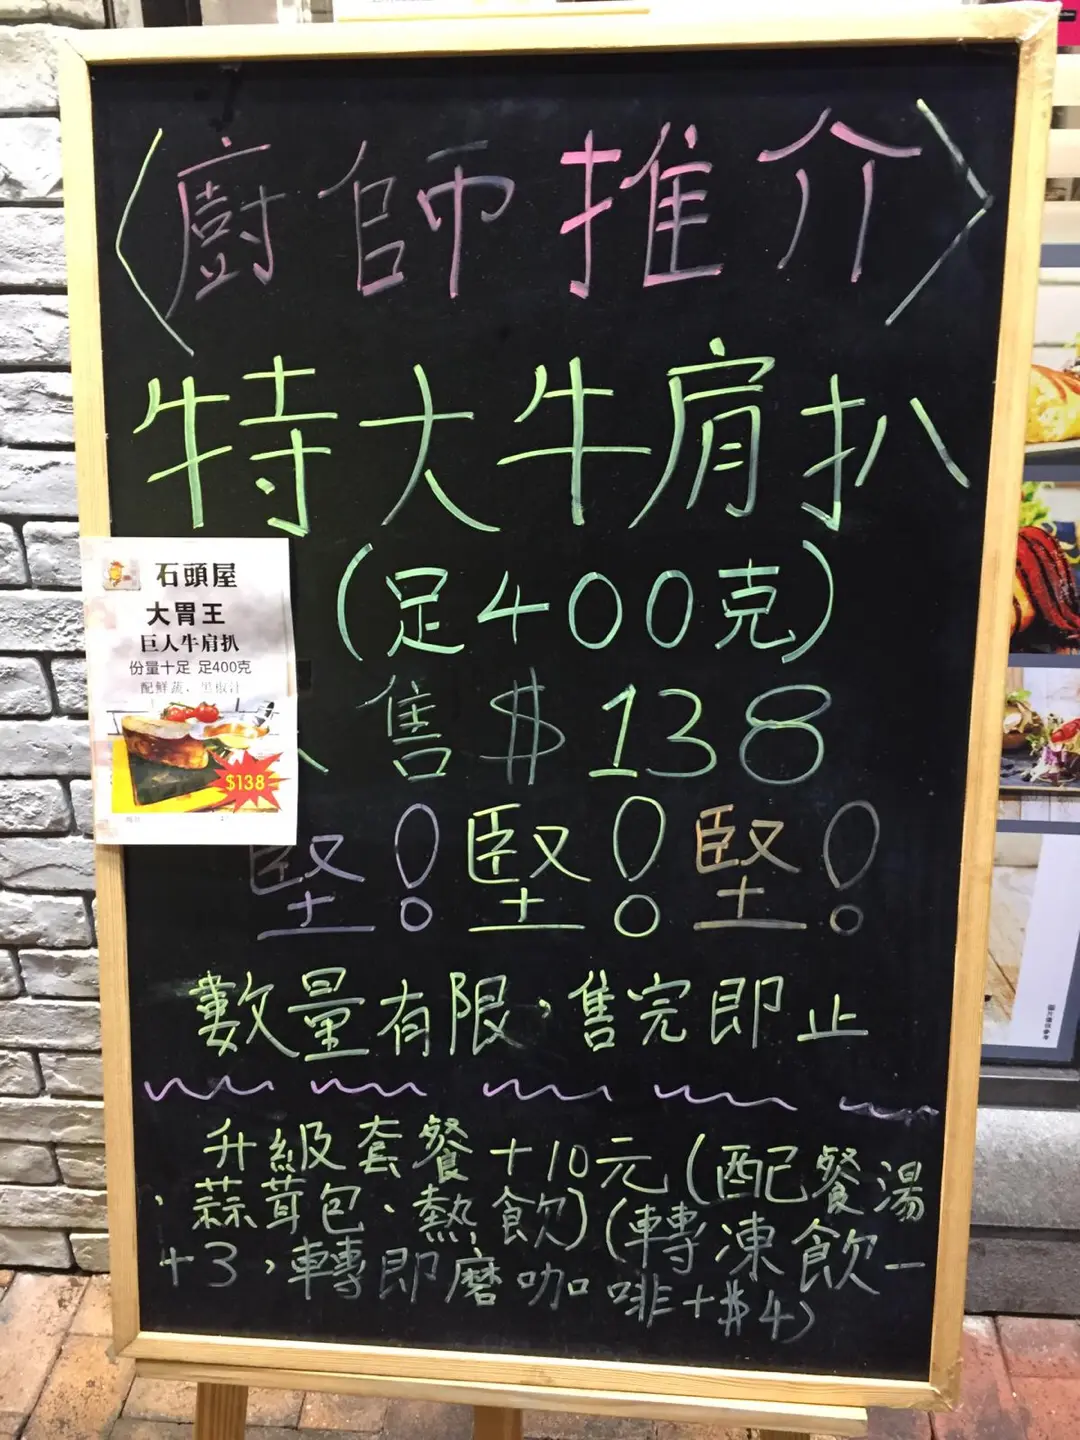 〈廚師推介〉
特大牛肩扒
(足400克)
售$138
堅!堅!堅!
數量有限,售完即止
升級套餐+10元(配餐湯
、蒜茸包、熱飲)(轉凍飲
+3,轉即磨咖啡+$4)
石頭屋
大胃王
巨人牛肩扒
份量十足 足400克
配鮮蔬,黑椒汁
$138
圖片僅供參考